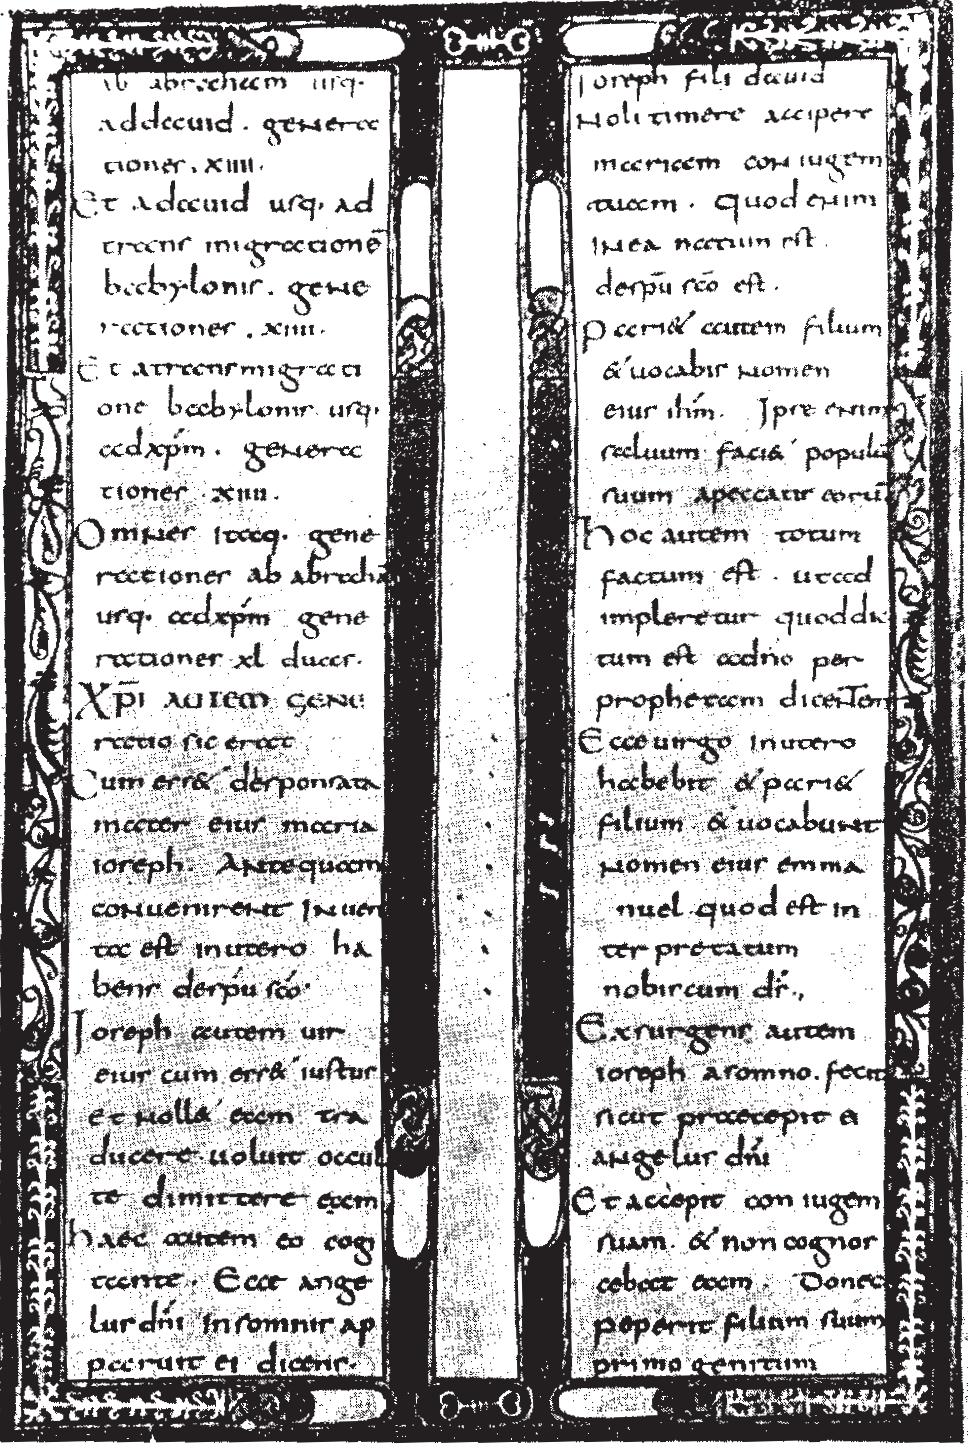 ab abraham usq·
addauid · genera
tiones · xiiii ·
Et adauid usq· ad
trans migrationē
babylonis · gene
rationes · xiiii ·
Et atransmigrati
one babylonis usq·
adxp̄m · genera
tiones · xiiii ·
Omnes itaq· gene
rationes ab abrahā
usq· adxp̄m gene
rationes xl duas ·
Xp̄i autem gene
ratio sic erat
Cum ess& desponsata
mater eius maria
ioseph · Antequam
conuenirent Inuen
ta est inutero ha
bens desp̄u sc̄o·
Ioseph autem uir
eius cum ess& iustus
et noll& eam tra
ducere uoluit occul
te dimittere eam
haec autem eo cog
tante · Ecce ange
lus dn̄i Insomnis ap
paruit ei dicens ·
Ioseph fili dauid
Noli timere accipere
mariam coniugem
tuam · Quod enim
Inea natum est ·
desp̄u sc̄o est ·
pari& autem filium
& uocabis nomen
eius ih̄m · Ipse enim
saluum faci& populū
suum apeccatis eorū
hoc autem totum
factum est · utad
impleretur quoddic
tum est adn̄o per
prophetam dicentem
Ecce uirgo Inutero
habebit & pari&
filium & uocabunt
nomen eius emma
nuel quod est in
ter pretatum
nobiscum d̄s ·,
Exsurgens autem
ioseph asomno · fecit
sicut praecepit ei
angelus dn̄i
Et accepit coniugem
suam · & non cognos
cebat eam · Donec
peperit filium suum
primo genitum